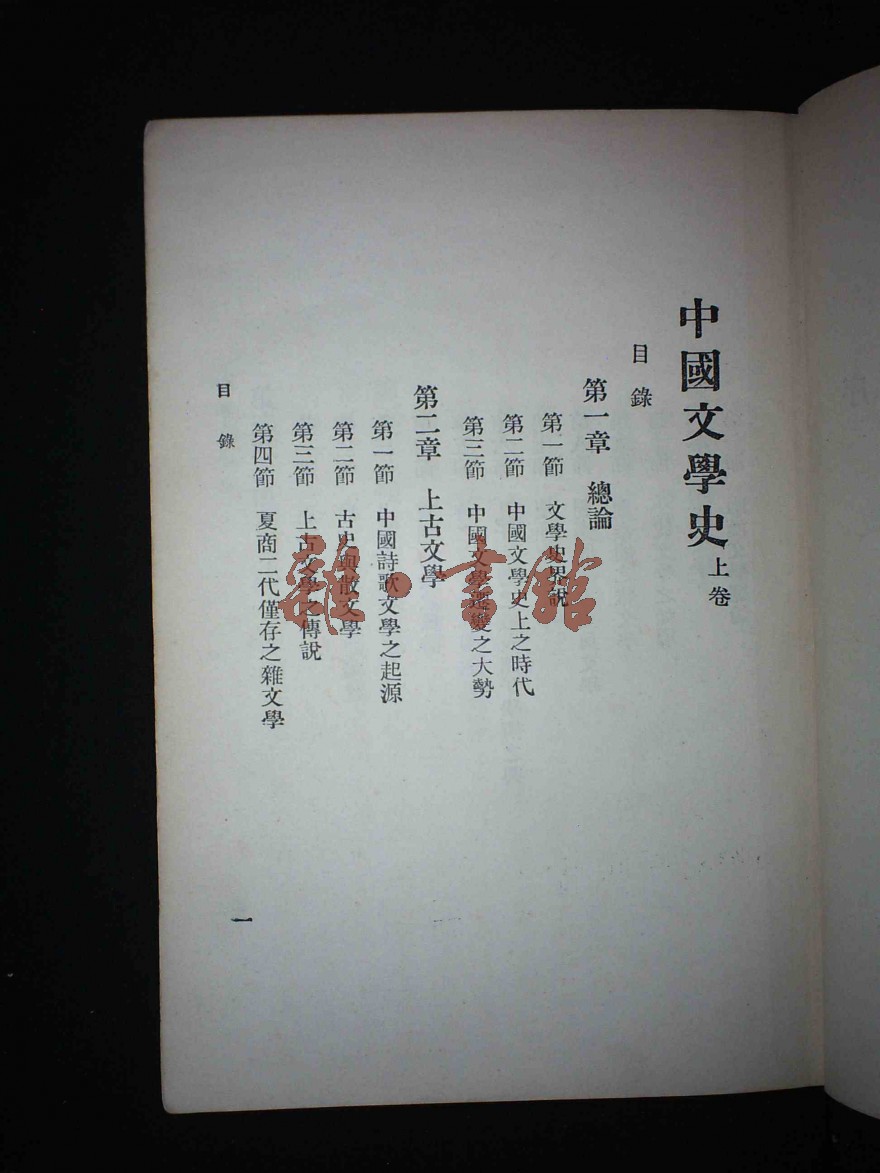 中國文學史 上卷
目錄
第一章 總論
第一節 文學史界說
第二節 中國文學史上之時代
第三節 中國文學遷變之大勢
第二章 上古文學
第一節 中國詩歌文學之起源
第二節 古史與散文學
第三節 上古文學之傳說
第四節 夏商二代僅存之雜文學
目錄
一
雜·書館